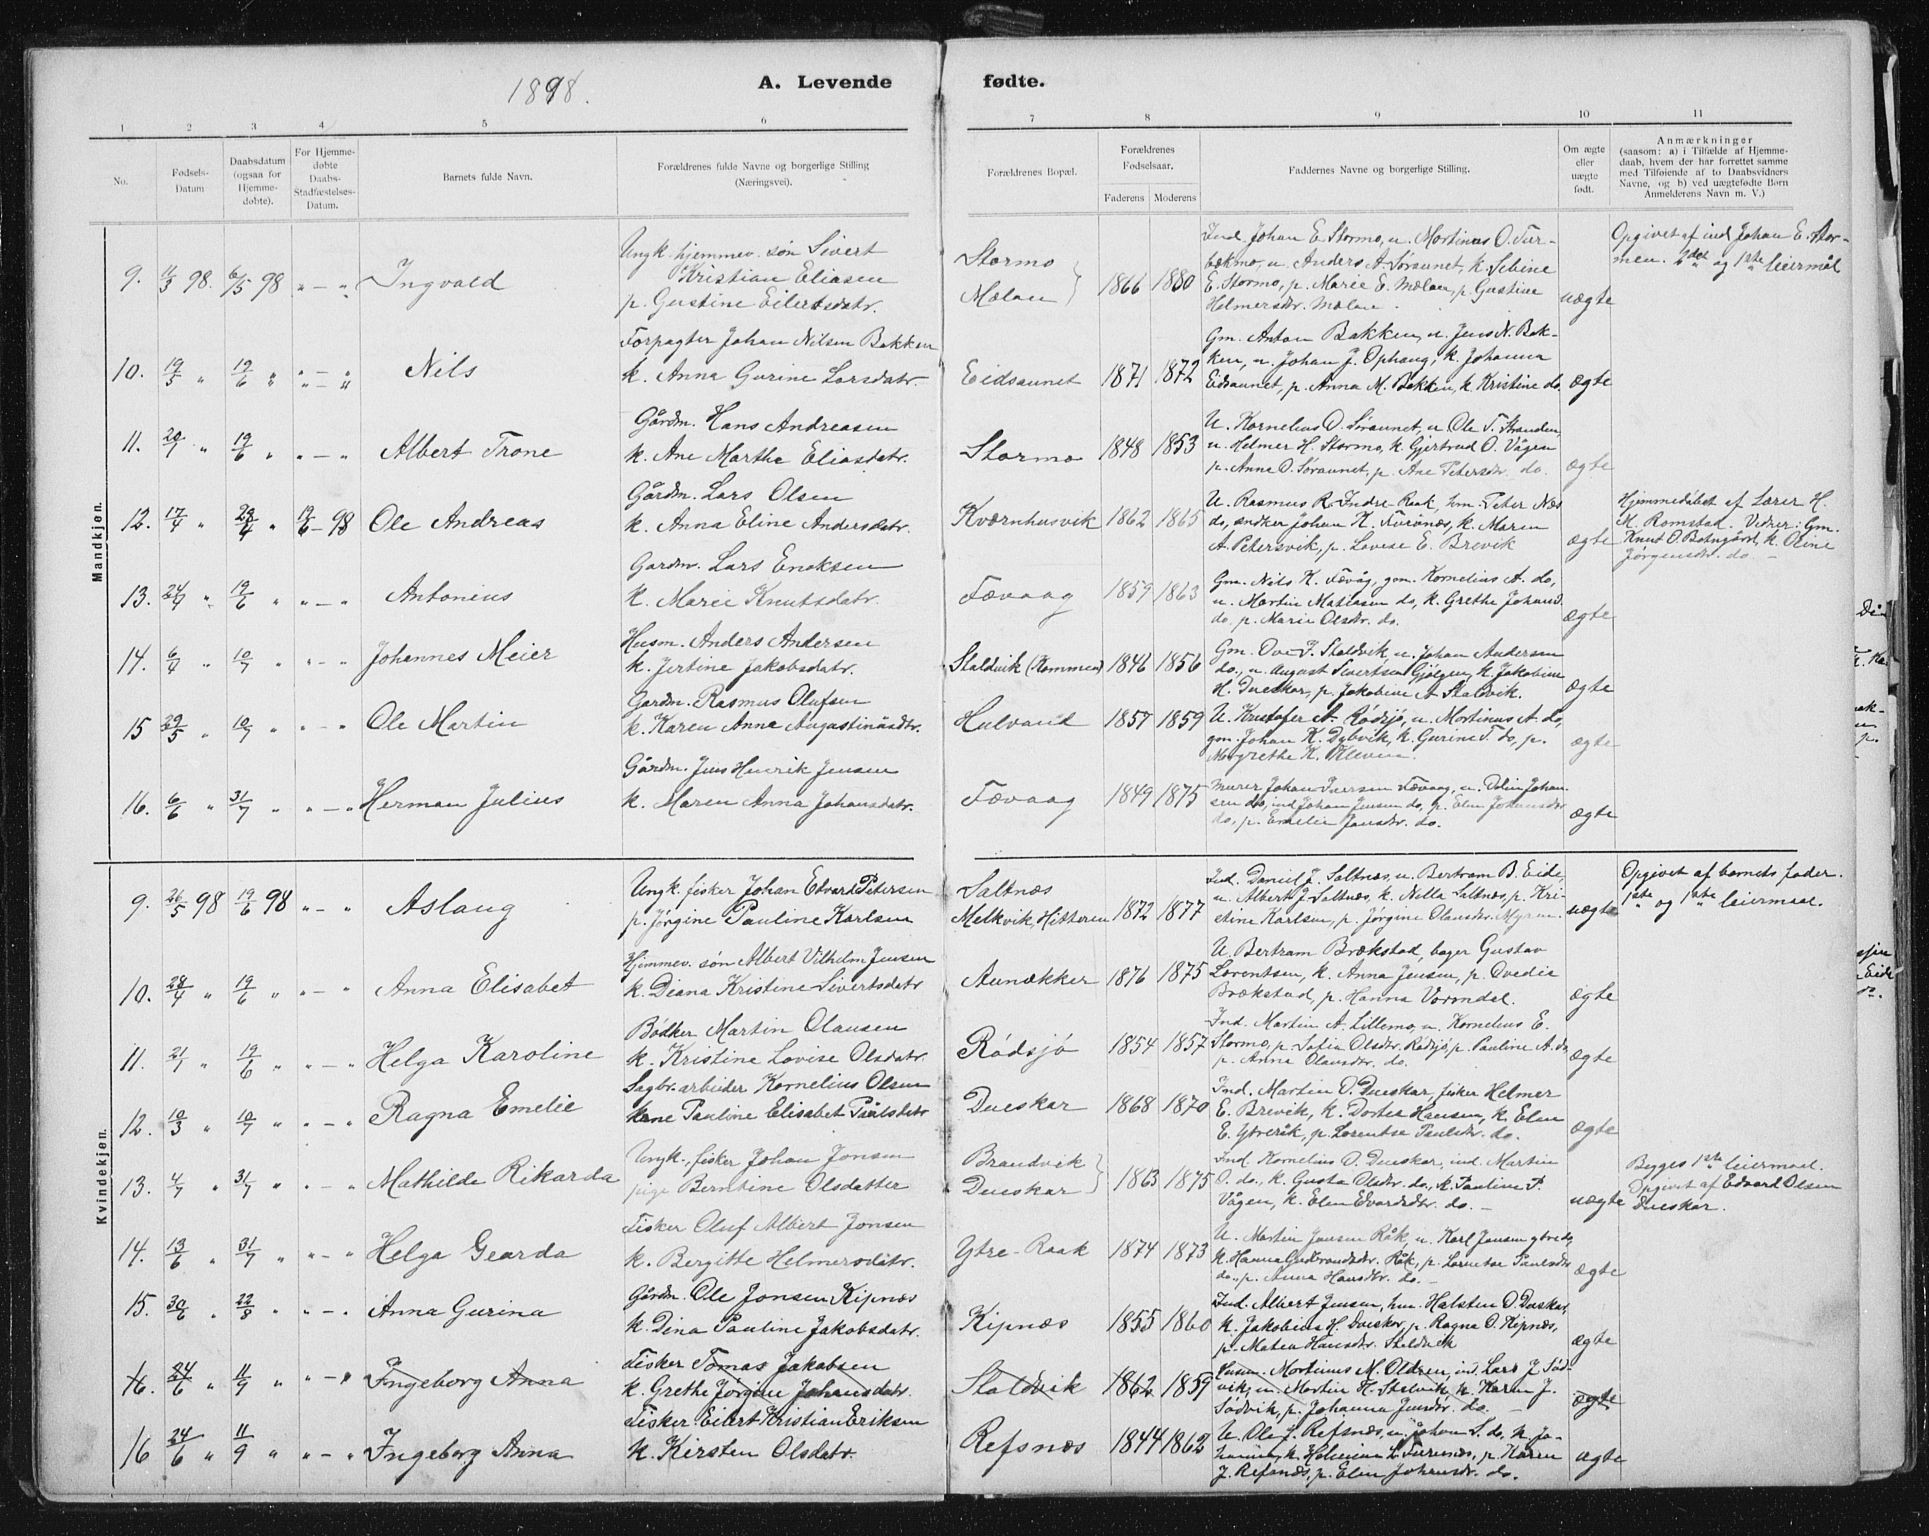 1898.
A. Levende fødte.
1 2 3 4 5 6 7 8 9 10 11
No.
Fødsels-Datum
Daabsdatum (ogsaa for Hjemmedøbte).
For Hjemmedøbte Daabs-Stadfæstelses-Datum.
Barnets fulde Navn.
Forældrenes fulde Navne og borgerlige Stilling (Næringsvei).
Forældrenes Bopæl.
Forældrenes Fødselsaar.
Faderens Moderens
Faddernes Navne og borgerlige Stilling.
Om ægte eller uægte født.
Anmærkninger
(saasom: a) i Tilfælde af Hjemmedaab, hvem der har forrettet samme med Tilføiende af to Daabsvidners Navne, og b) ved uægtefødte Børn Anmelderens Navn m. V.)
Mandkjøn.
9. 11/3 98. 6/5 98 " — " Ingvald
Ungk. hjemmev. søn Sivert
Kristian Eliasen
p. Gustine Eilertsdatr.
Stormo
Mælan
1866 1880
Ind. Johan E. Stormo, u. Martinus O. Fur-
bækmo, u. Anders A. Søraunet, k. Sebine
E. Stormo, p. Marie E. Mælan, p. Gustine
Helmersdr. Mælan.
uægte
Opgivet af ind. Johan E. Stor-
men. og 1ste leiermål
10. 19/5 " 19/6 " " — " Nils
Forpagter Johan Nilsen Bakken
k. Anna Gurine Larsdatr.
Eidsaunet 1871 1872
Gm. Anton Bakken, u. Jens N. Bak-
ken, u. Johan J. Ophaug, k. Johanna
Eidsaunet, p. Anna M. Bakken, k. Kristine do.
ægte
11. 20/7 " 19/6 " " — " Albert Trone
Gårdm. Hans Andreasen
k. Ane Marthe Eliasdatr.
Stormo 1848 1853
U. Kornelius O. Søraunet, u. Ole T. Stranden,
u. Helmer H. Stormo, k. Gjertrud O. Vågen
p. Anna O. Søraunet, p. Ane Petersdr. do.
ægte
12. 17/4 " 23/4 " 19/6 — 98 Ole Andreas
Gårdm. Lars Olsen
k. Anna Eline Andersdatr.
Kværnhusvik 1862 1865
U. Rasmus R. Indre-Raak, hm. Peter Næs
do, enker Johan K. Furunæs, k. Maren
A. Petersvik, p. Lovise E. Brevik
ægte
Hjemmedøbt af Lærer H.
M. Romstad. Vidner: Gm.
Knut O. Botngård, k. Oline
Jørgensdr. do. —
13. 24/4 " 19/6 " " — " Antonius
Gardm. Lars Enoksen
k. Marie Knutsdatr.
Fævaag 1859 1863
Gm. Nils K. Fævåg, gm. Kornelius A. do,
u. Martin Matiasen do, k. Grethe Johansd.
do, p. Marie Olsdtr. do.
ægte
14. 6/4 " 10/7 " " — " Johannes Meier
Husm. Anders Andersen
k. Jertine Jakobsdatr.
Staldvik (Kommen) 1846 1856
Gm. Ove J. Staldvik, u. Johan Andersen
do., u. August Sivertsen Gjølgen, k. Jakobine
H. Dueskar, p. Jakobine A. Stalvik.
ægte
15 29/5 " 10/7 " " — " Ole Martin
Gardm. Rasmus Olufsen
k. Karen Anna Augustinusdtr.
Hulvand 1857 1859
U. Kristofer A. Rødsjø, u. Martinus A. do,
gm. Johan K. Dybvik, k. Gurine T. do, p.
Margrethe K. Kleven
ægte
16. 6/6 " 31/7 " " — " Herman Julius
Gårdm. Jens Henrik Jensen
k. Maren Anna Johansdatr.
Fævaag 1849 1875
Murer Johan Iversen Fævaag, u. Odin Johan-
sen do, ind Johan Jensen do, p. Elen Johansdtr
do, p. Emelie Jansdtr. do.
ægte
Kvindekjøn.
9. 26/5 98 19/6 98 " — " Aslaug
Ungk. fisker Johan Edvard Petersen
p. Jørgine Pauline Karlsen
Saltnæs
Melkvik, Hitteren
1872 1877
Ind. Daniel J. Saltnæs, u. Bertram B. Eide,
u. Albert J. Saltnæs, k. Nella Saltnæs, p. Kri-
stine Karlsen, p. Jørgine Olausdtr. Myran.
uægte
Opgivet af barnets fader.
1ste og 1ste leiermaal.
10. 28/4 " 19/6 " " — " Anna Elisabet
Hjemmev. søn Albert Vilhelm Jensen
k. Deana Kristine Sivertsdatr
Aunækker 1876 1875
U. Bertram Brækstad, bager Gustav
Lorentsen, k. Anna Jensen, p. Ovedia
Brækstad, p. Hanna Vormdal.
ægte
11. 21/7 " 19/6 " " — " Helga Karoline
Bødker Martin Olausen
k. Kristine Lovise Olsdatr.
Rødsjø 1854 1857
Ind. Martin A. Lillemo, u. Kornelius E.
Stormo, p. Sofia Olsdtr. Rødsjø, p. Pauline A. do,
p. Anna Olausdtr. do.
ægte
12. 10/3 " 10/7 " " — " Ragna Emelie
Sagbr. arbeider Kornelius Olsen
kone Pauline Elisabet Pålsdatr
Dueskar 1868 1870
Ind. Martin O. Dueskar, fisker Helmer
E. Brevik, k. Dortea Hansen, k. Elen
E. Ytreråk, p. Lorentse Paulsdr. do.
ægte
13. 4/7 " 31/7 " " — " Mathilde Rikarda
Ungk., fisker Johan Jonsen
pige Berntine Olsdatter
Brandvik
Dueskar
1863 1875
Ind. Kornelius O. Dueskar, ind. Martin
O. do., k. Gusta Olsdr. do., k. Pauline P.
Vågen, k. Elen Edvardsdtr. do. —
uægte
Begges 1ste leiermaal.
Opgivet af Edvard Olsen
Dueskar.
14. 13/6 " 31/7 " " — " Helga Gearda
Fisker Oluf Albert Jonsen
k. Bergitte Helmersdatr.
Ytre-Raak 1874 1873
U. Martin Jansen Råk, u. Karl Jansen ytre do,
k. Hanna Gudbrandsdtr. Råk, p. Lorentse Paulsdtr
do., p. Anna Hansdtr. do. —
ægte
15. 30/6 " 22/8 " " — " Anna Gurina
Gårdm. Ole Jonsen Kipnæs
k. Dina Pauline Jakobsdatr.
Kipnæs 1855 1860
Ind. Albert Jensen, hm. Halsten O. Dueskar,
k. Jakobina H. Dueskar, p. Ragna O. Kipnæs,
p. Matea Hansdtr. Staldvik
ægte
16. 24/6 " 11/9 " " — " Ingeborg Anna
Fisker Tomas Jakobsen
k. Grethe Jørgine Johansdatr.
Staldvik 1862 1859
Husm. Martinus M. Oldren, ind. Lars J. Sød-
vik, u. Martin H. Stalvik, k. Karen J.
Sødvik, p. Johanna Jensdtr. do. —
ægte
16 24/6 " 11/9 " " — " Ingeborg Anna
Fisker Eilert Kristian Eriksen
k. Kirsten Olsdatr.
Refsnæs 1844 1862
U. Ole J. Refsnæs, u. Johan S. do, k. Jo-
hanna, k. Helmine L. Furunæs, p. Karen
J. Refsnæs, p. Elen Johansdr. do.
ægte